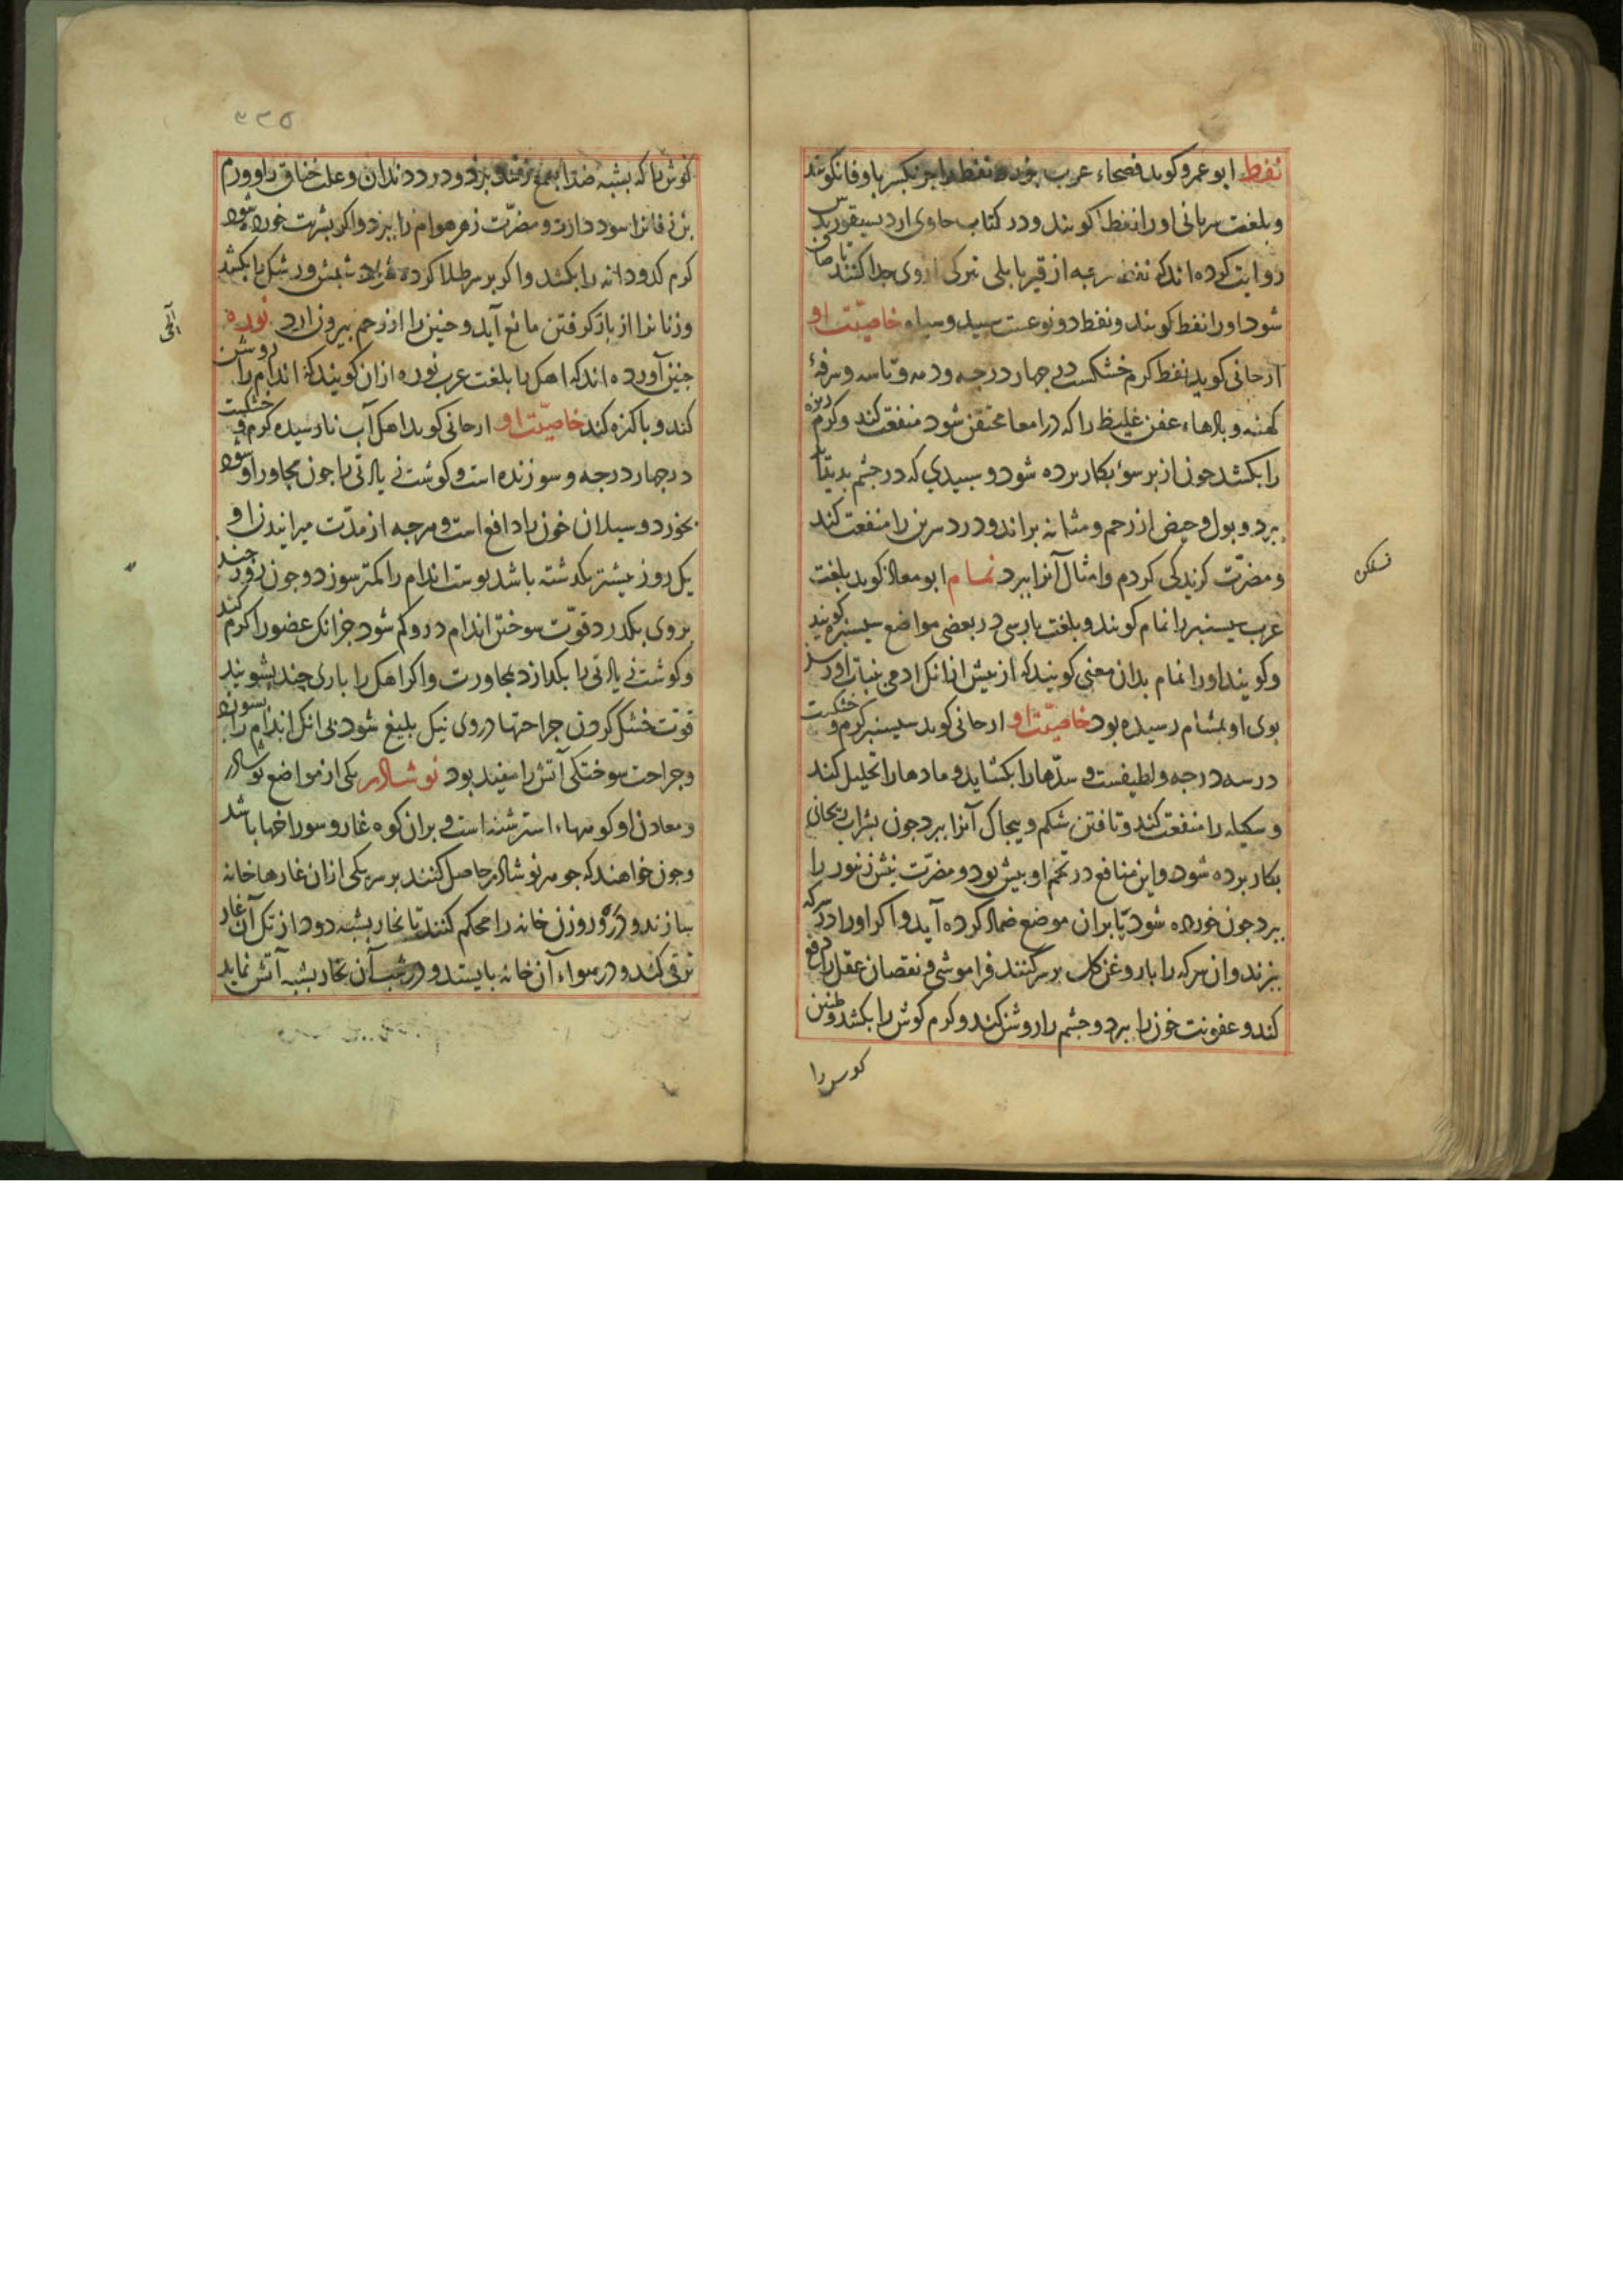 نفط ابو عمرو کوید فصحاء عرب نفط را بکسر با و فا نکویند
و بلغت سریانی او را نفطا کویند و در کتاب حاوی ارد
روایت کرده اند که نفط از قیر بابلی تیرکی ازوی جدا کنند تا صافی
شود او را نفط کویند و نفط دو نوعست سپید و سیاه خاصیّت او
ارحانی کوید نفط کرم خشکست در چهار درجه و دمه و تاسه و سرفهٔ
کهنه و بادهاء عفن غلیظ را که در امعا محتقن شود منفعت کند و کرم ریزه
را بکشد جون از بر سو بکار برده شود و سپیدی که در جشم بدید آید
ببرد و بول و حیض از رحم و مثانه براند و درد سرین را منفعت کند
و مضرّت کزندکی کزدم و امثال آنرا ببرد نمام ابو معاذ کوید بلغت
عرب سیسنبر را نمام کویند و بلغت بارسی در بعضی مواضع سیسنبر کویند
و کویند او را نمام بدان معنی کویند که از بیش از آنک ادمی بنبات او رسد
بوی او بمشام رسیده بود خاصیّت او ارحانی کوید سیسنبر کرم و خشکست
در سه درجه و لطیفست و سدّها را بکشاید و مادها را تحلیل کند
و سکیله را منفعت کند و تافتن شکم و بیجاک آنرا ببرد جون بشراب ریحانی
بکار برده شود و این منافع در تخم او بیش بود و مضرّت نیش زنبور را
ببرد جون خورده شود یا بران موضع ضماد کرده آید و اکر او را در سرکه
بزند و ان سرکه را با روغن کل بر سر کنند فراموشی و نقصان عقل را دفع
کند و عفونت خون را ببرد و جشم را روشن کند و کرم کوش را بکشد و طنین
کوش را
کوش را که بشبه صدا بسمع رسد ببرد و درد دندان و علت خناق را و ورم
بن زفانرا سود دارد و مضرّت زهر هوام را ببرد و اکر بشربت خورده شود
کرم کدودانه را بکشد و اکر بر سر طلا کرده شود شبش و رشک را بکشد
و زنانرا از باز کرفتن مانع آید و جنین را از رحم بیرون ارد نوره
جنین آورده اند که اهک را بلغت عرب نوره ازان کویند که اندام را روشن
کند و باکیزه کند خاصیّت او ارحانی کوید اهک آب نارسیده کرم و خشکست
در جهار درجه و سوزنده است و کوشت زیادتی را جون مجاور او شود
بخورد و سیلان خون را دافع است و هرجه از مدّت میرانیدن او
یک روز بیشتر بکذشته باشد بوست اندام را کمتر سوزد و جون روز جند
بر وی بکذرد قوّت سوختن اندام درو کم شود جز انک عضو را کرم کند
و کوشت زیادتی را بکدازد بمجاورت و اکر اهک را باری چند بشویند
قوّت خشک کردن جراحتها در وی نیک بلیغ شود بی انک اندام را بسوزد
و جراحت سوختکی آتش را مفید بود نوشادر یکی از مواضع نوشادر
و معادن او کوهاء استرشنه است و بران کوه غار و سوراخها باشد
و جون خواهند که جوهر نوشادر حاصل کنند بر سر یکی ازان غارها خانه
بسازند و در و روزن خانه را محکم کنند تا بخار بشبه دود از تک آن غار
ترقی کند و در هواء آن خانه بایستد و در شب آن بخار بشبه آتش نماید